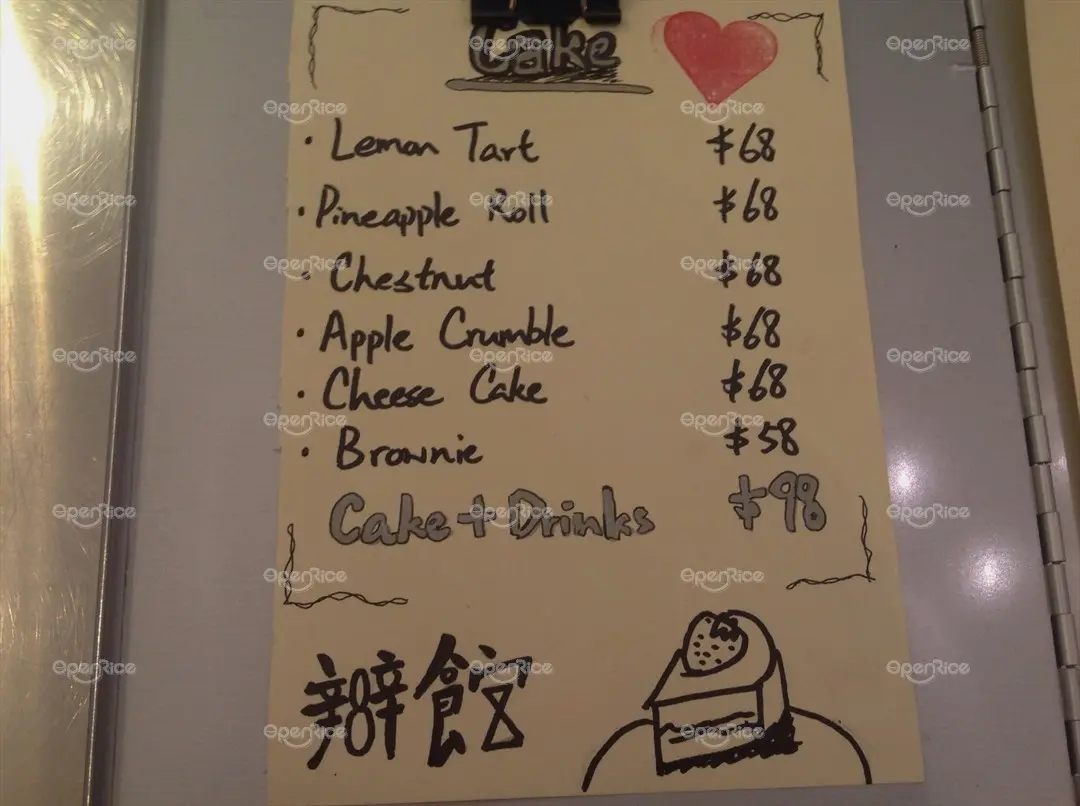 Cake
· Lemon Tart $68
· Pineapple Roll $68
· Chestnut $68
· Apple Crumble $68
· Cheese Cake $68
· Brownie $58
Cake + Drinks $98
辦館
OpenRice